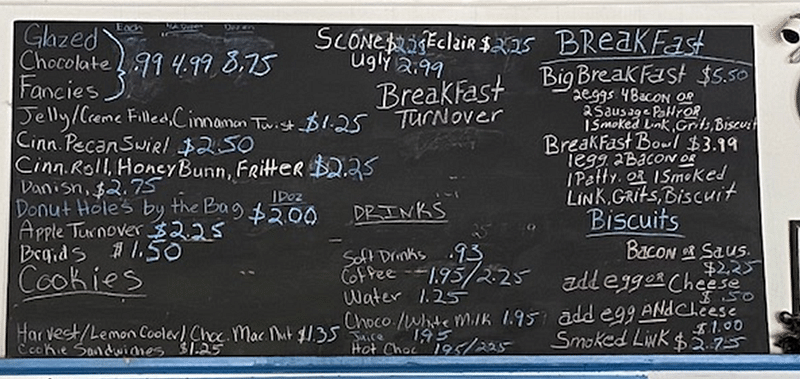 Each ½ Dozen Dozen
Glazed
Chocolate .99 4.99 8.75
Fancies
Jelly/Creme Filled, Cinnamon Twist $1.25
Cinn. Pecan Swirl $2.50
Cinn. Roll, Honey Bunn, Fritter $2.25
Danish, $2.75
Donut Hole's by the Bag 1 Doz $2.00
Apple Turnover $2.25
Braids $1.50
Cookies
Harvest/Lemon Cooler/Choc. Mac Nut $1.35
Cookie Sandwiches $1.25
Scone $2.25 Eclair $2.25
Ugly 2.99
Breakfast
Turnover
DRINKS
Soft Drinks .93
Coffee 1.95/2.25
Water 1.25
Choco./White Milk 1.95
Juice 1.95
Hot Choc 1.95/2.25
BReaKFasT
Big BreakFast $5.50
2eggs 4Bacon OR
2 Sausage Patty OR
1 Smoked Link, Grits, Biscuit
BreakFast Bowl $3.99
1egg. 2Bacon or
1 Patty. or 1 Smoked
Link, Grits, Biscuit
Biscuits
Bacon or Saus.
$2.25
add egg or Cheese
$.50
add egg AND Cheese
$1.00
Smoked Link $2.75